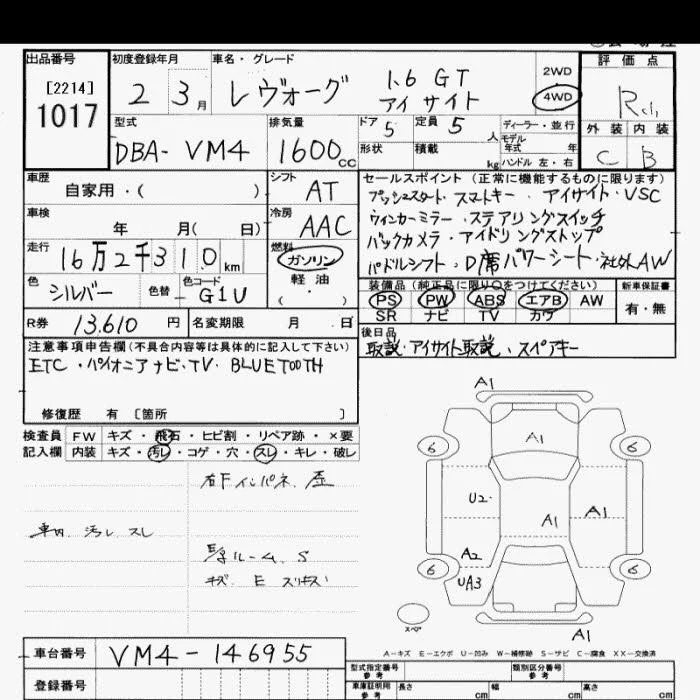 出品番号 初度登録年月 車名・グレード 評価点
[2214] 2WD
1017 2 3月 レヴォーグ 1.6 GT アイサイト 4WD
型式 排気量 ドア 5 定員 5人 ディーラー・並行 外装 内装
DBA- VM4 1600cc 形状 積載 kg モデル年式 年 C B
ハンドル 左・右
車歴 シフト セールスポイント (正常に機能するものに限ります)
自家用・( ) AT プッシュスタート・スマートキー・アイサイト・VSC
車検 冷房 ウィンカーミラー・ステアリングスイッチ
年 月( 日) AAC バックカメラ・アイドリングストップ
走行 燃料 パドルシフト・D席パワーシート・社外AW
16万2千310km ガソリン
色 色替 色コード 軽油 装備品 (純正品に限り○をつけてください) 新車保証書
シルバー G1U ( ) PS PW ABS エアB AW 有・無
SR ナビ TV カワ
R券 13,610円 名変期限 月 日 後日品
注意事項申告欄(不具合内容等は具体的に記入して下さい) 取説・アイサイト取説、スペアキー
ETC・パイオニアナビ・TV・BLUETOOTH
修復歴 有 [箇所 ]
検査員 FW キズ・飛石・ヒビ割・リペア跡・×要
記入欄 内装 キズ・汚レ・コゲ・穴・スレ・キレ・破レ
右Fインパネ、歪
車内、汚レ、スレ
A1
6 A1 6
U2 A1 A1
A2
6 UA3 6
スペア
A1
A-キズ E-エクボ U-凹み W-補修跡 S-サビ C-腐食 XX-交換済
車台番号 VM4-146955
登録番号
型式指定番号 参考 類別区分番号 参考
車庫証明用 参考 長さ cm 幅 cm 高さ cm